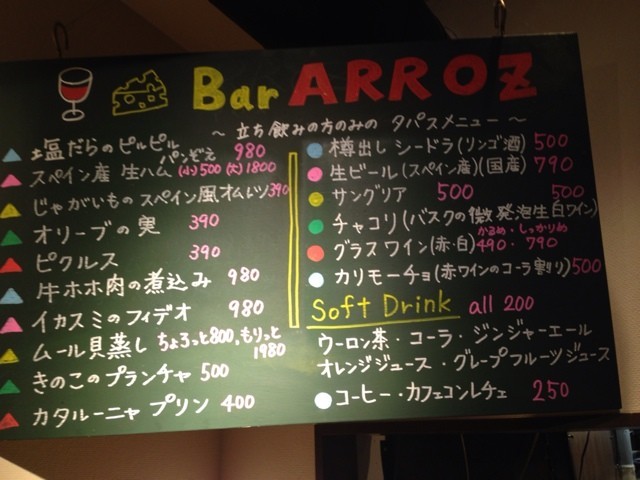 Bar ARROZ
～ 立ち飲みの方のみの タパスメニュー ～
塩だらのピルピル パンぞえ 980
スペイン産 生ハム (小)500 (大)1800
じゃがいもの スペイン風オムレツ 390
オリーブの実 390
ピクルス 390
牛ホホ肉の煮込み 980
イカスミのフィデオ 980
ムール貝蒸し ちょろっと800, もりっと1980
きのこのプランチャ 500
カタルーニャ プリン 400
樽出し シードラ(リンゴ酒) 500
生ビール(スペイン産)(国産) 790
サングリア 500 500
チャコリ(バスクの微発泡生白ワイン)
かるめ・しっかりめ
グラスワイン(赤・白) 490・790
カリモーチョ(赤ワインのコーラ割り) 500
Soft Drink all 200
ウーロン茶・コーラ・ジンジャーエール
オレンジジュース・グレープフルーツジュース
コーヒー・カフェコンレチェ 250